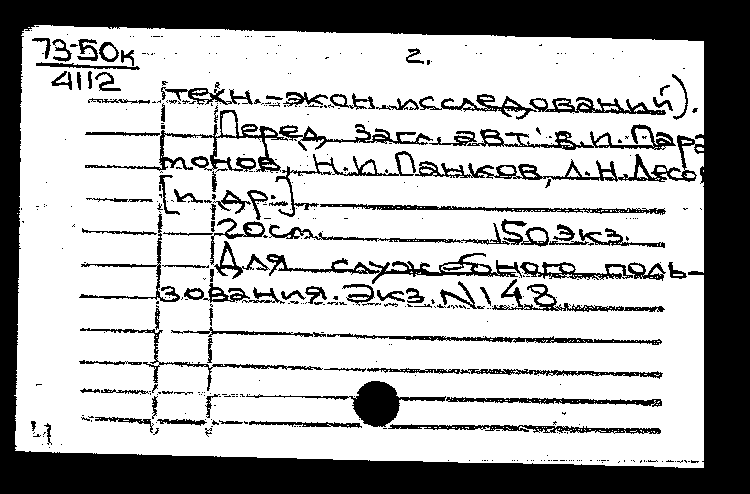 73-50к
4112
2.
техн.-экон. исследований).
Перед загл. авт: В.И. Пара
монов, Н.И. Панков, Л.Н. Лесо
[и др.]
20 см. 150 экз.
Для служебного поль-
зования. Экз. N 148.